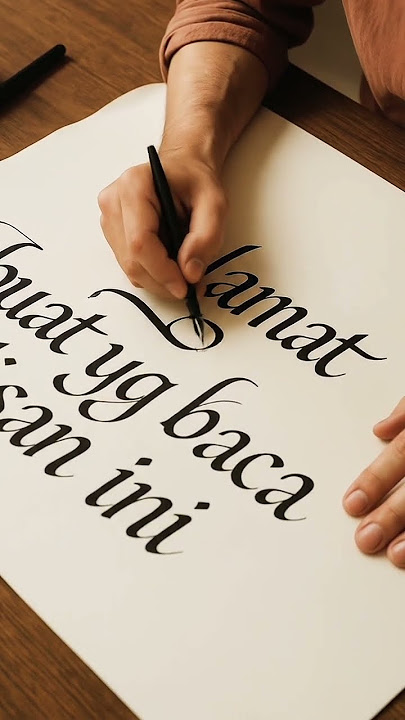 lamat
buat yg baca
san ini